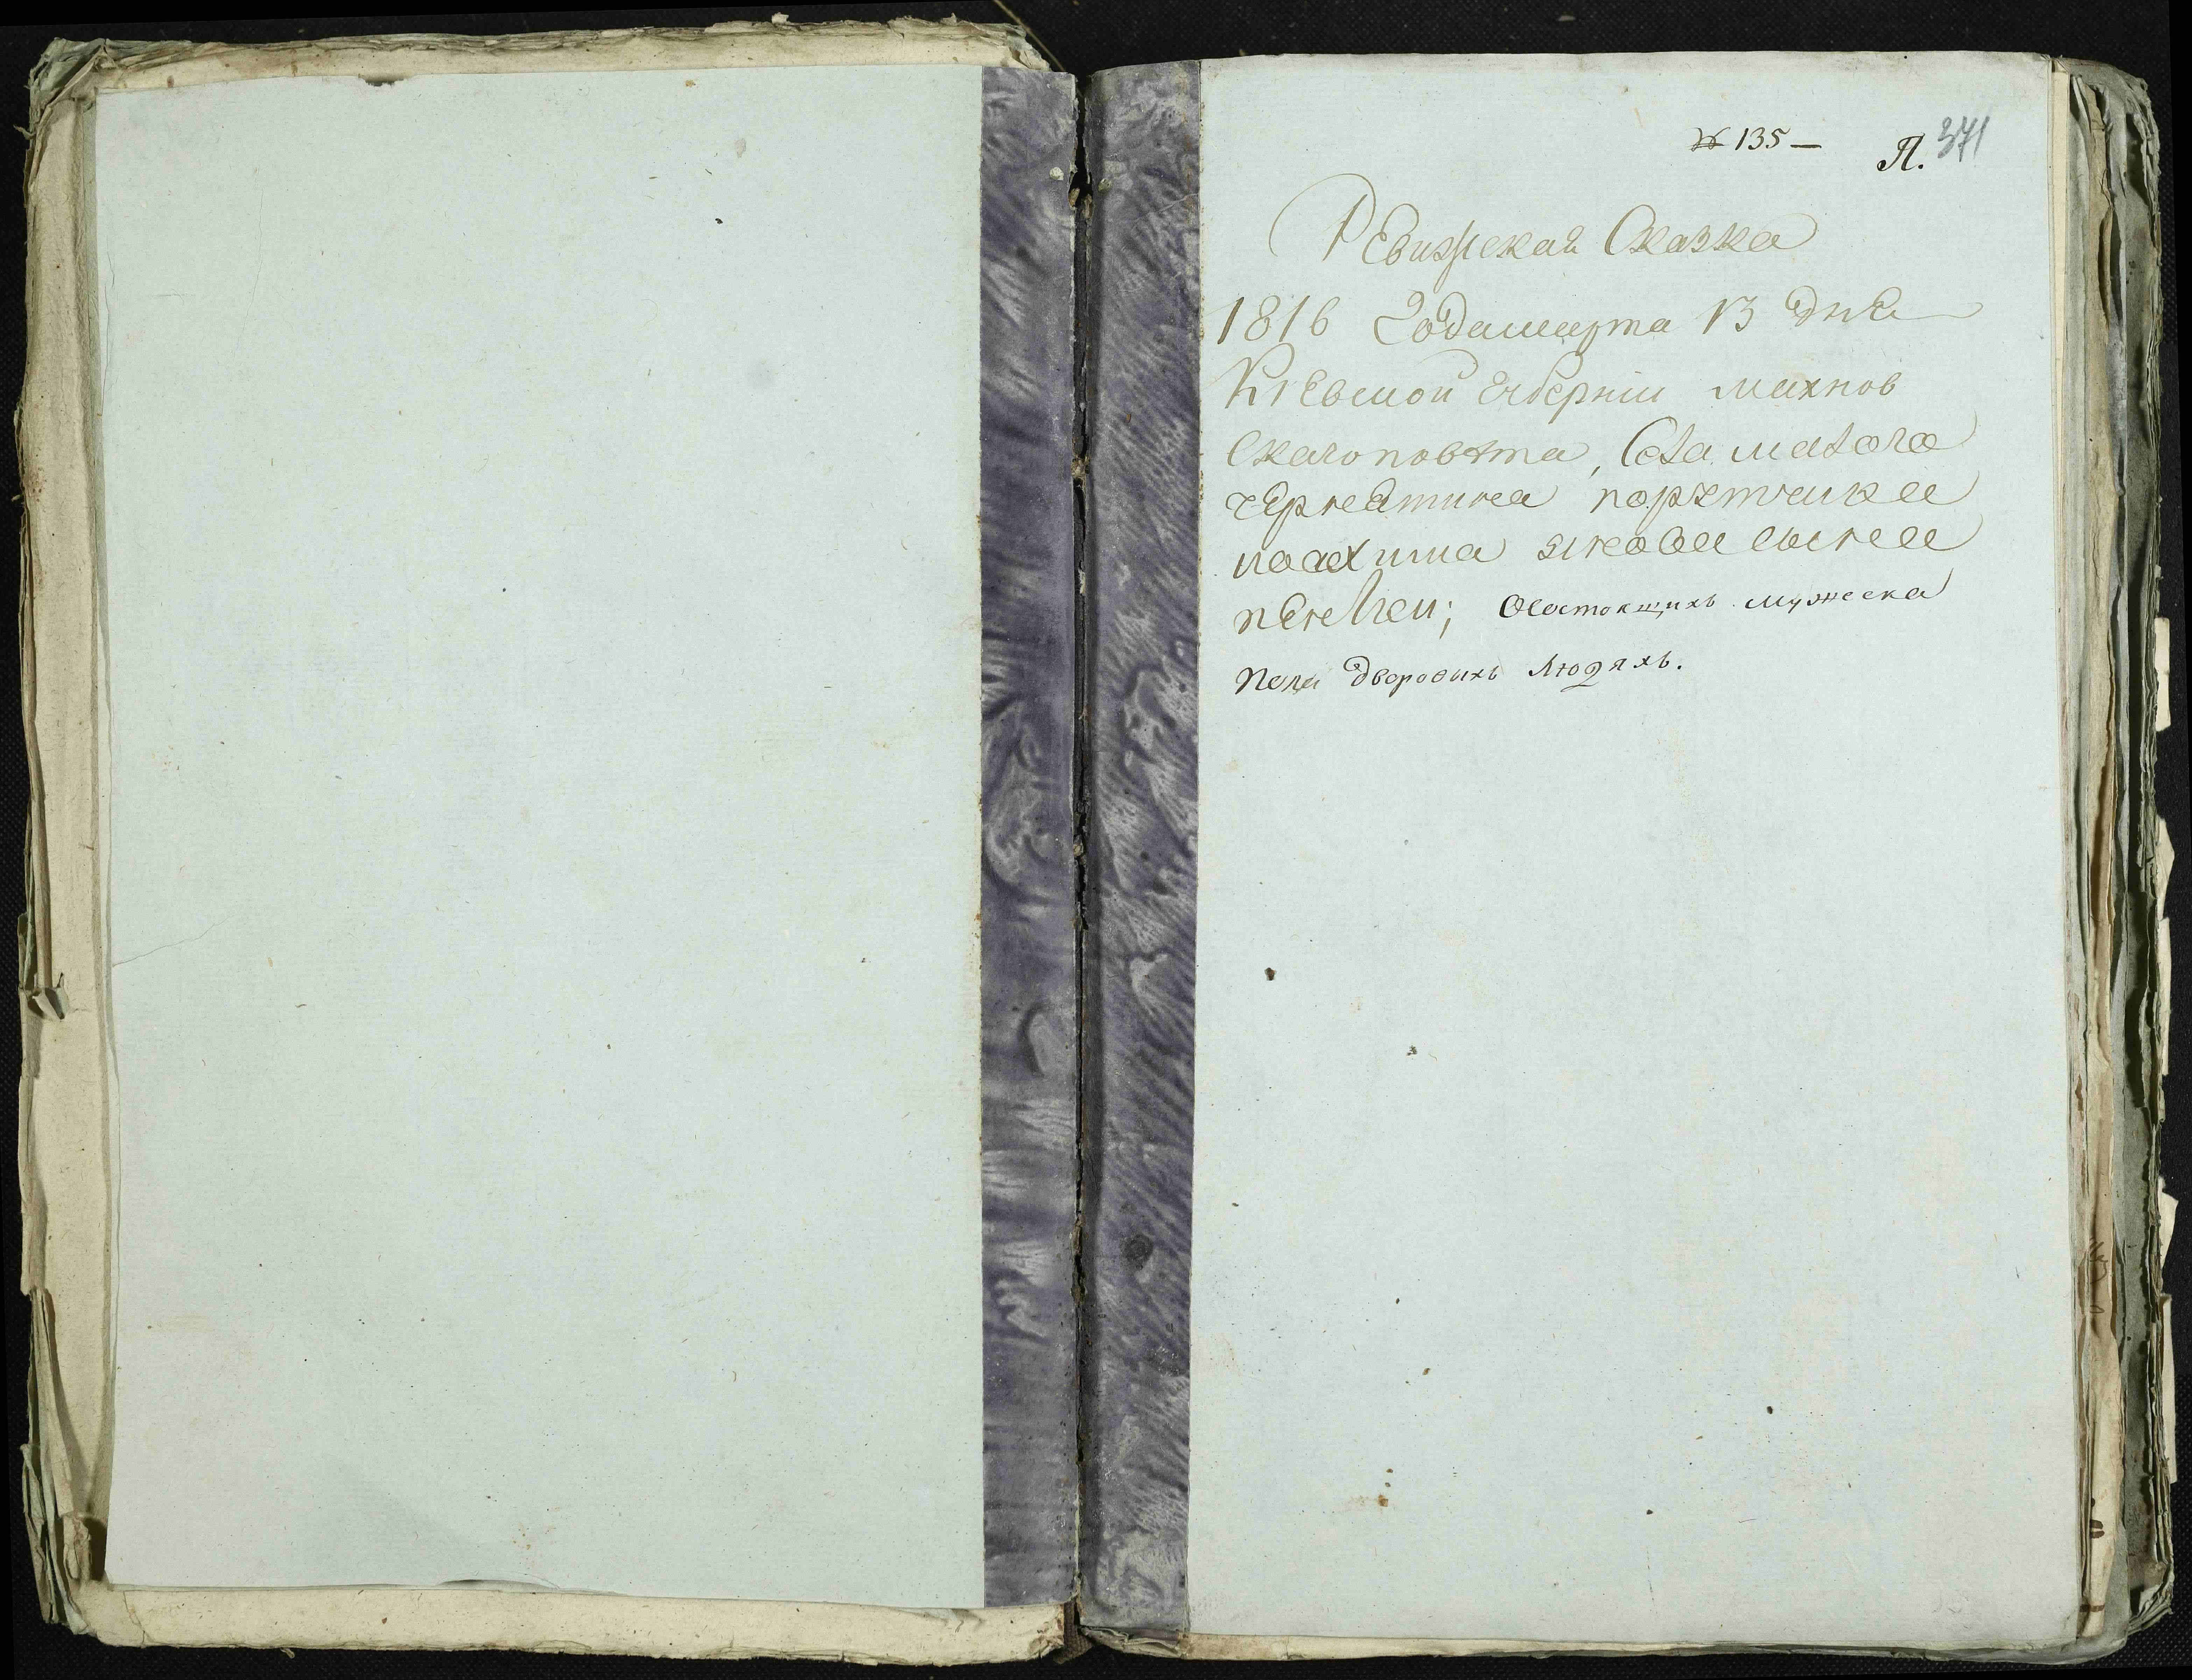 № 135 —
Л. 371
Ревизская Сказка
1816 года марта 13 дня
Киевской Губернии махнов
скаго повѣта, Села малого
чернятина порутчика
иоахима яковa сына
; О состоящихъ мужеска
пола дворовихъ людяхъ.